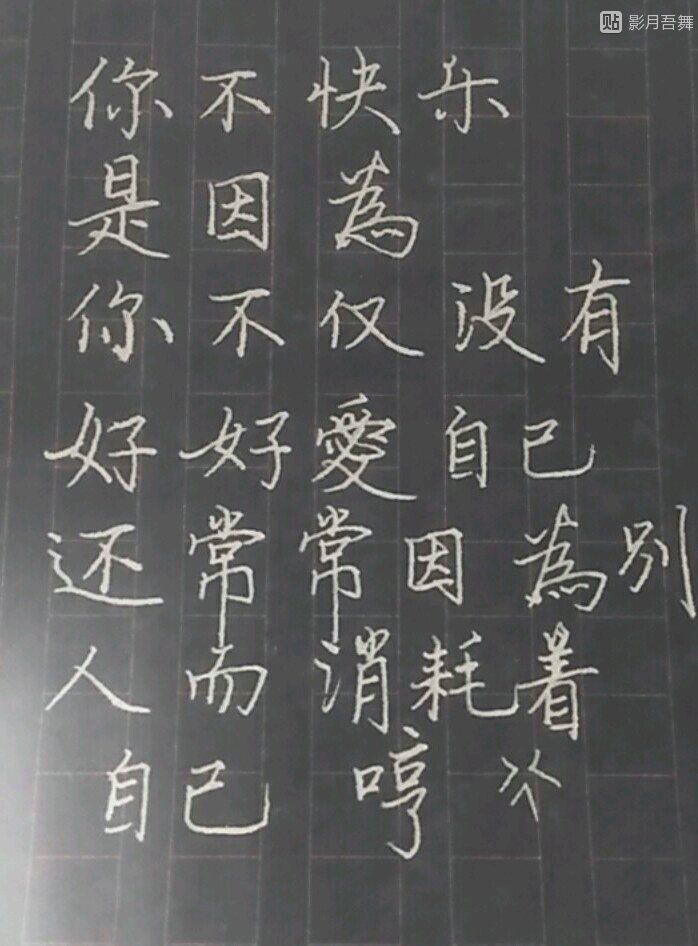 贴 影月吾舞
你不快乐
是因為
你不仅没有
好好愛自己
还常常因為别
人而消耗着
自己 哼